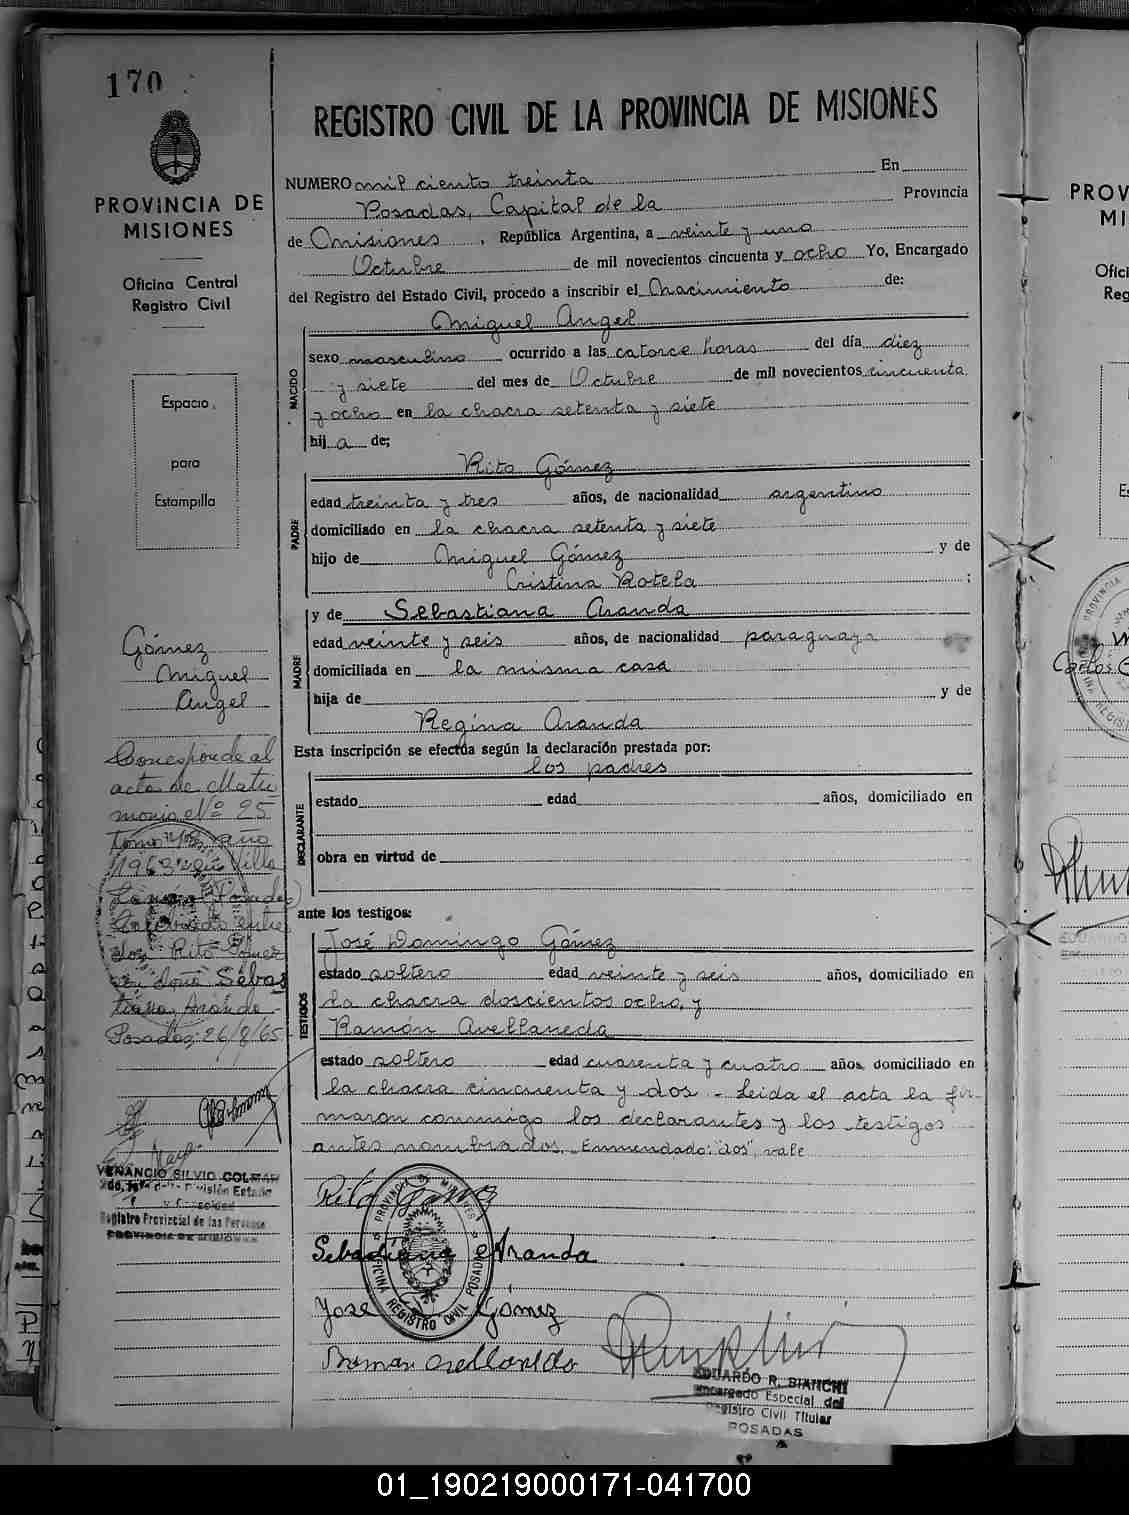 170
REGISTRO CIVIL DE LA PROVINCIA DE MISIONES
PROVINCIA DE
MISIONES
Oficina Central
Registro Civil
Espacio
para
Estampilla
NUMERO mil ciento treinta En
Posadas, Capital de la Provincia
de Misiones, República Argentina, a veinte y uno
Octubre de mil novecientos cincuenta y ocho Yo, Encargado
del Registro del Estado Civil, procedo a inscribir el Nacimiento de:
NACIDO
Miguel Angel
sexo masculino ocurrido a las catorce horas del día diez
y siete del mes de Octubre de mil novecientos cincuenta
y ocho en la chacra setenta y siete
hij a de;
PADRE
Rito Gómez
edad treinta y tres años, de nacionalidad argentino
domiciliado en la chacra setenta y siete
hijo de Miguel Gómez y de
Cristina Rotela ;
MADRE
y de Sebastiana Aranda
edad veinte y seis años, de nacionalidad paraguaya
domiciliada en la misma casa
hija de y de
Regina Aranda
Esta inscripción se efectúa según la declaración prestada por:
los padres
DECLARANTE
estado edad años, domiciliado en
obra en virtud de
ante los testigos:
TESTIGOS
José Domingo Gómez
estado soltero edad veinte y seis años, domiciliado en
la chacra doscientos ocho, y
Ramón Avellaneda
estado soltero edad cuarenta y cuatro años, domiciliado en
la chacra cincuenta y dos - Leida el acta la fir-
maron conmigo los declarantes y los testigos
antes nombrados. Enmendado: "dos", vale
Rito Gomez
Sebastiana Aranda
Jose Gómez
Roman Avellaneda
PROVINCIA DE MISIONES
OFICINA REGISTRO CIVIL POSADAS
EDUARDO R. BIANCHI
Encargado Especial del
Registro Civil Titular
POSADAS
Gómez
Miguel
Angel
Corresponde al
acta de Matri
monio Nº 25
Tomo año
1963 Villa
Posadas
entre
don Rito Gomez
con doña Sebas
tiana Aranda
Posadas 26/8/65
VENANCIO SILVIO COLMAN
División Estado
Registro Provincial de las Personas
PROVINCIA DE MISIONES
PROV
MI
Ofici
Reg
Es
Carlos
01_190219000171-041700